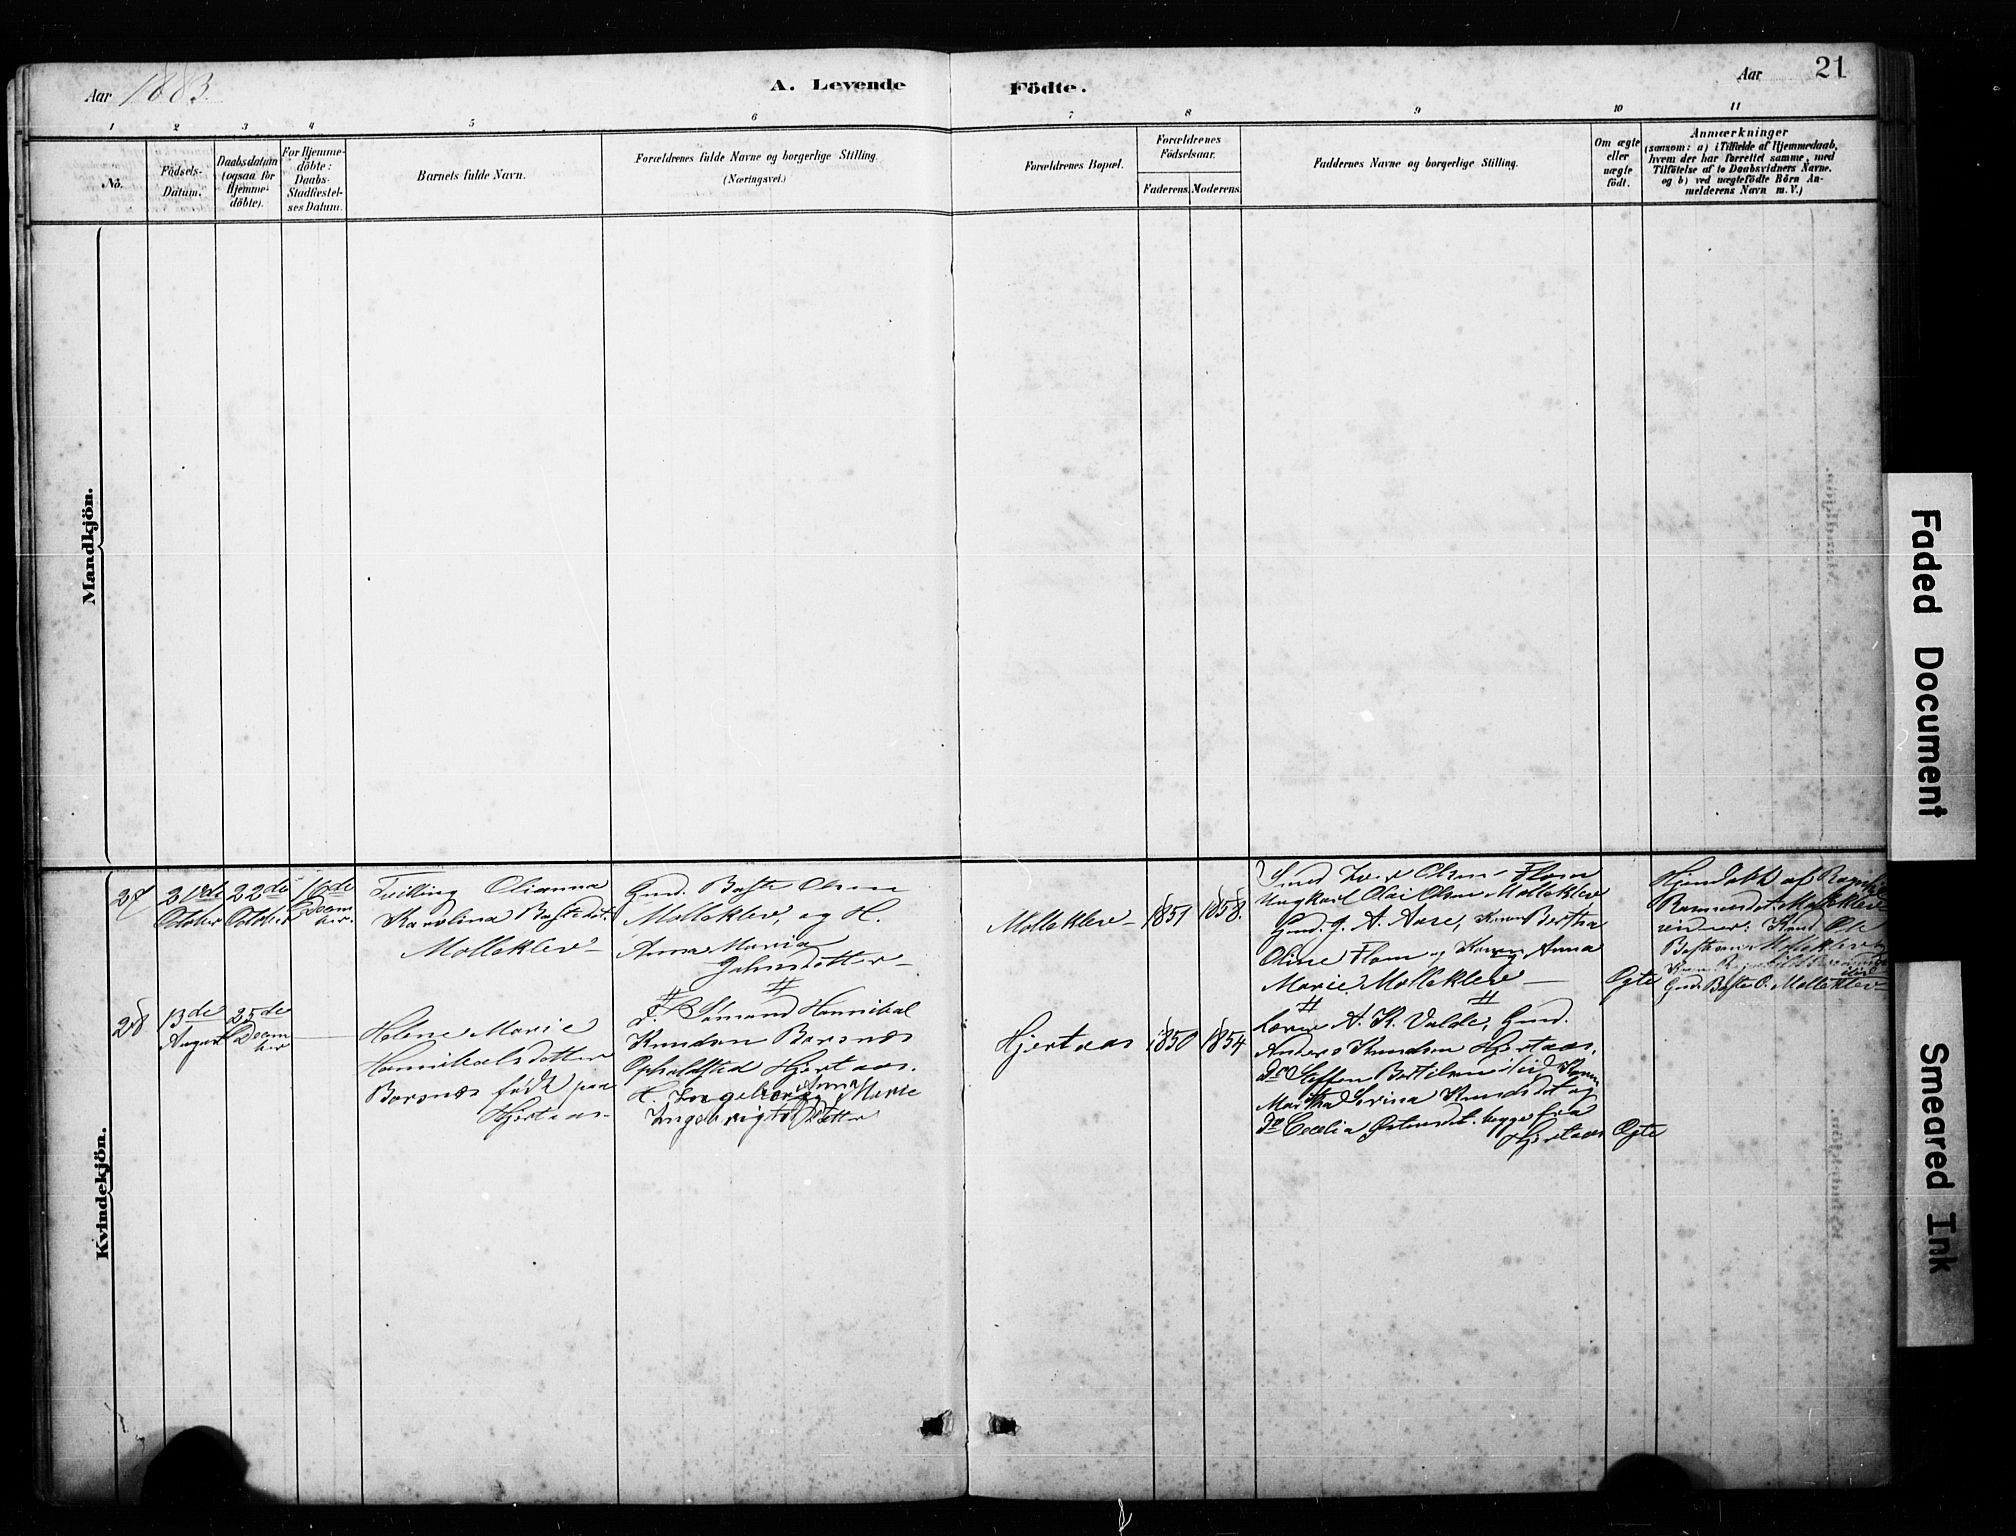 Aar 1883.
A. Levende
Födte.
Aar
21
1 2 3 4 5 6 7 8 9 10 11
No.
Födsels-
Datum.
Daabsdatum
(ogsaa for
Hjemme-
döbte).
For Hjemme-
döbte:
Daabs-
Stadfæstel-
ses Datum.
Barnets fulde Navn.
Forældrenes fulde Navne og borgerlige Stilling.
(Næringsvei.)
Forældrenes Bopæl.
Forældrenes
Födselsaar.
Faderens.
Moderens.
Faddernes Navne og borgerlige Stilling.
Om ægte
eller
uægte
födt.
Anmærkninger
(saasom: a) i Tilfælde af Hjemmedaab,
hvem der har forrettet samme, med
Tilföielse af to Daabsvidners Navne.
og b) ved uægtefödte Börn An-
melderens Navn m. V.)
Mandkjön.
Kvindekjön.
27
21de
October
22de
October
16de
Decem
ber.
Tvilling Olianna
Karolina Bastesdt.
Molleklev
Gmd. Baste Olsen
Molleklev, og H.
Anna Maria
Johnsdotter
Molleklev
1851
1858.
Smed Olsen Floen
Ungkarl Olai Olsen Molleklev
Gmd. J. A. Aase, Konen Bertha
Oline Floen og Konen Anna
Marie Molleklev
Ogte
Hjemdøbt af
Molleklev
Ole
Bastesen Molleklev
Gmd. Baste O. Molleklev
28
13de
August
25de
Decem
ber
Helene Marie
Hannibalsdotter
Borsnæs født paa
Hjertaas
F. Hannibal
Knudsen Borsnæs
Opholdsted Hjertaas.
H. Ingeborg Anna Marie
Ingebrigtsdotter
Hjertaas
1850
1854
Lærer A. K. Valde, Gmd.
Anders Knudsen Hjertaas,
Do Steffen Bottilsen Konen
Martha Serina Knudsdt og
Do Cecelia begge fra
Hjertaas
Ogte
Faded Document
Smeared Ink